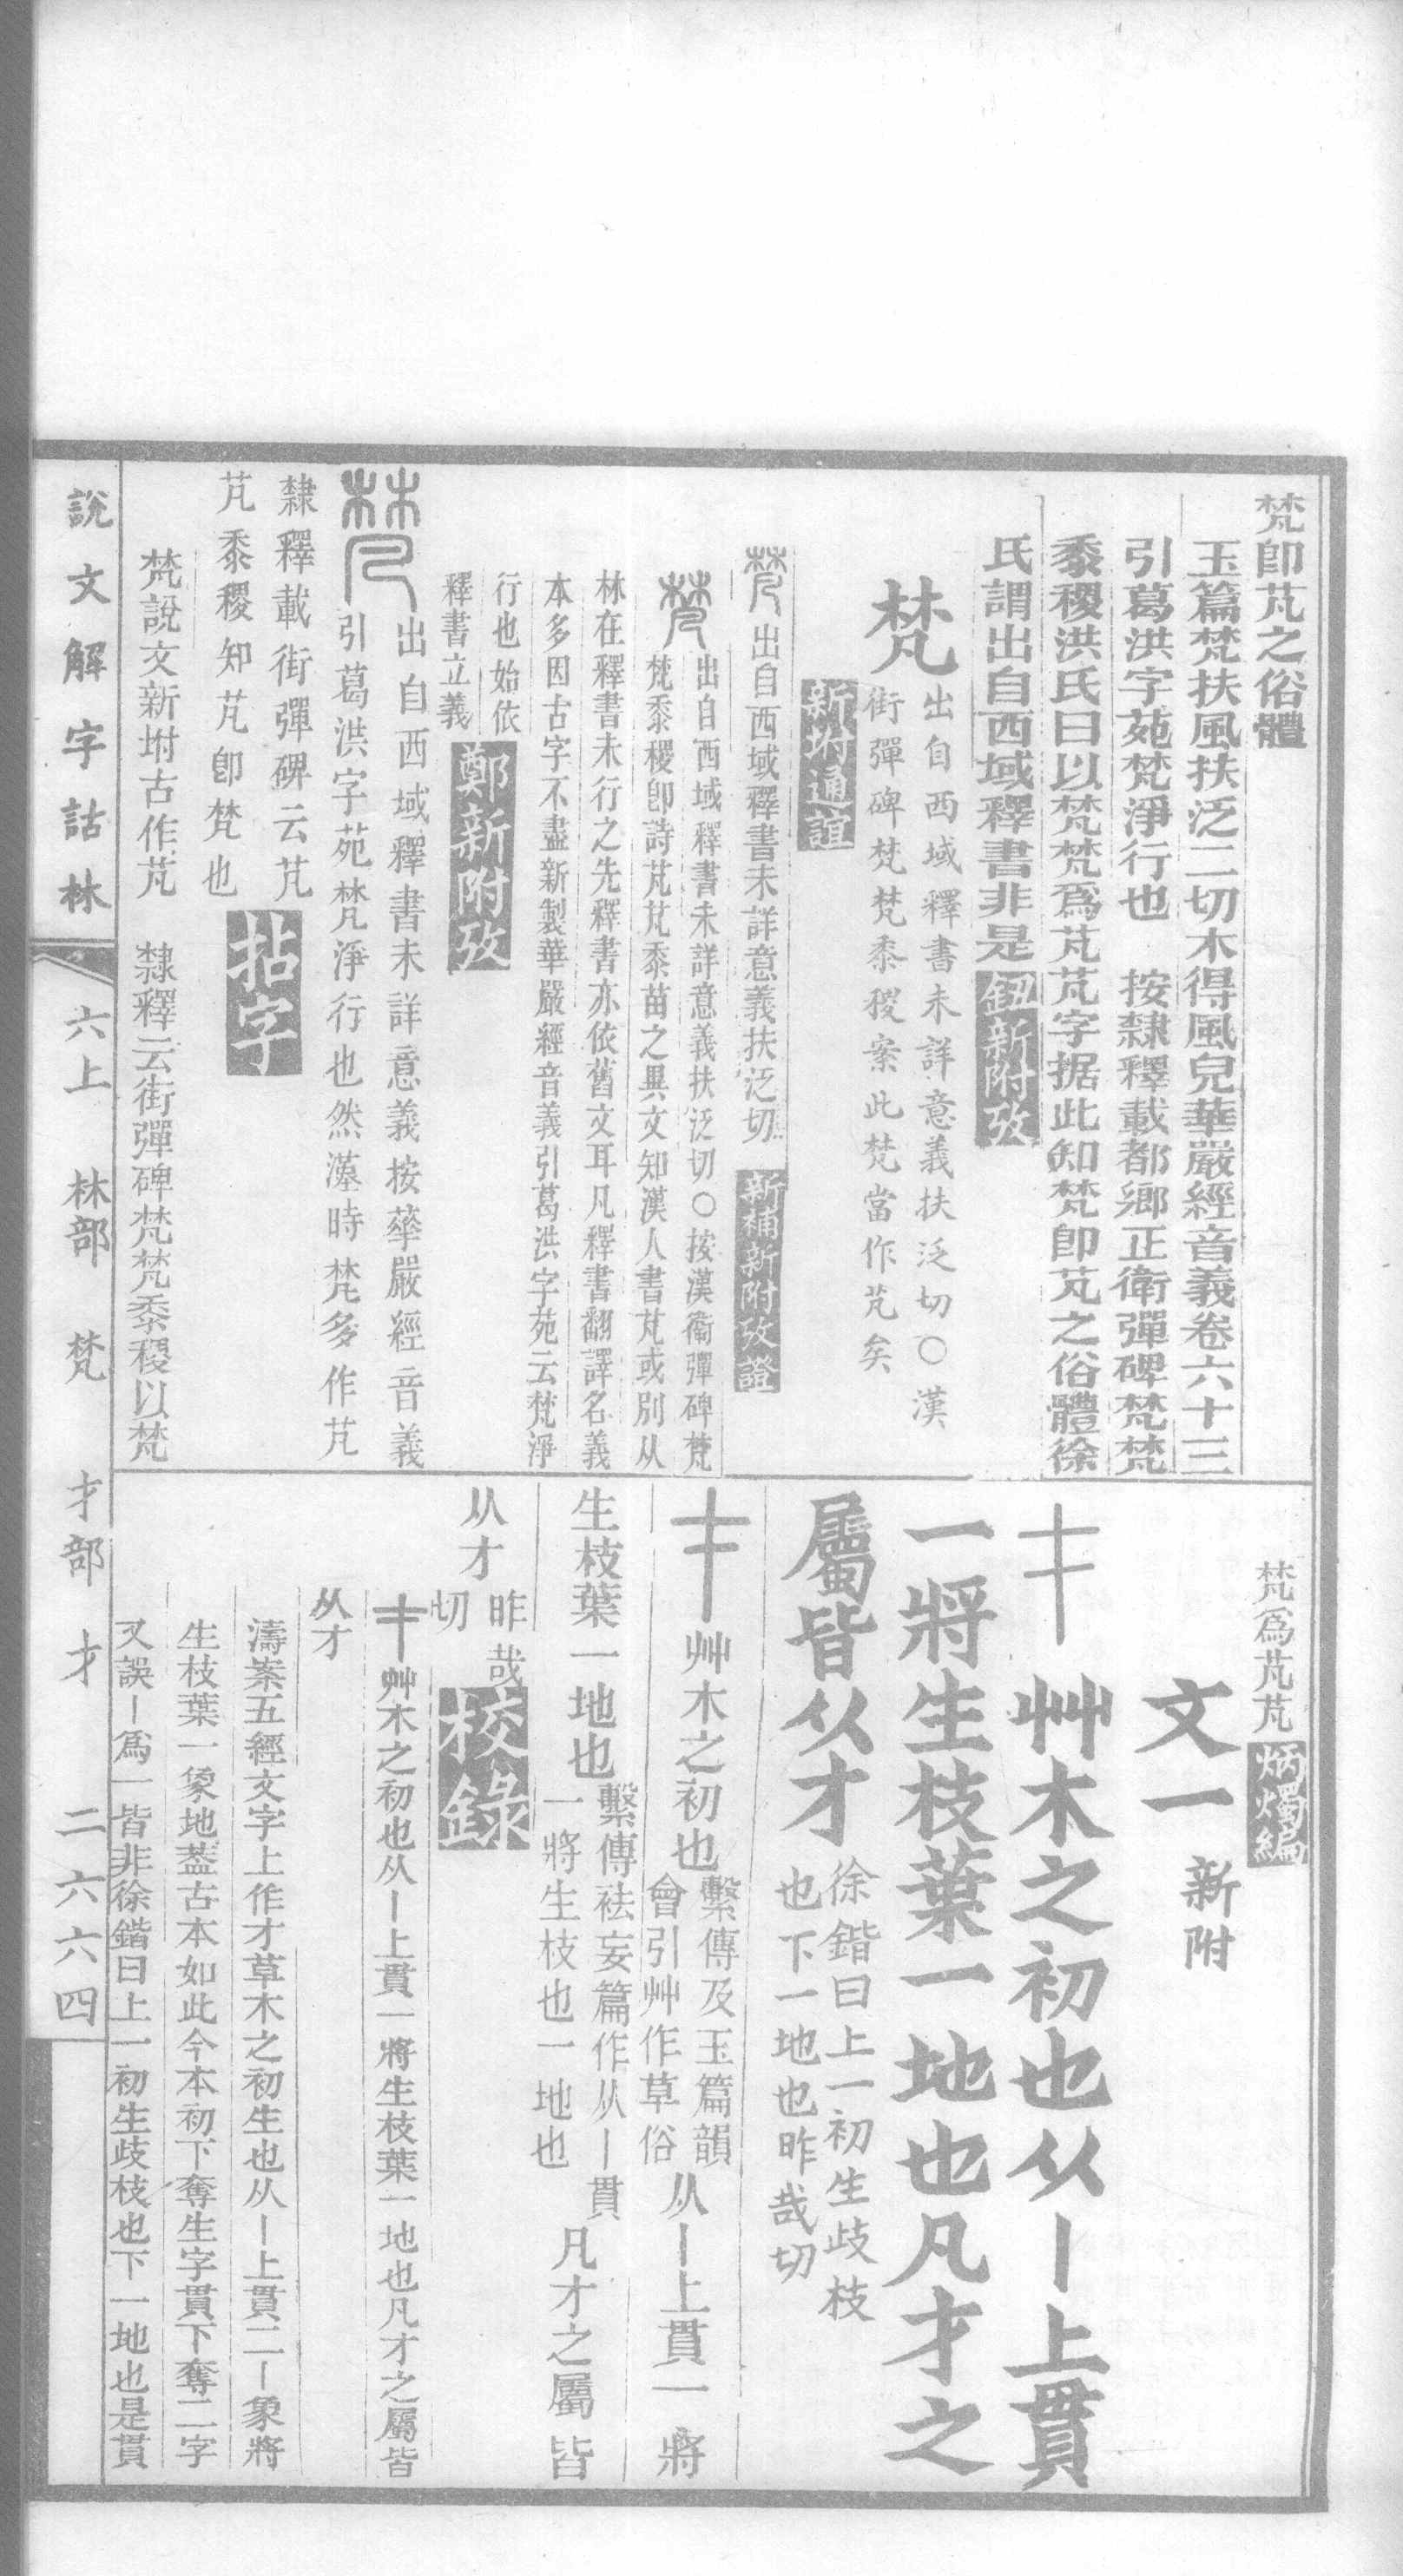 梵卽芃之俗體
玉篇梵扶風扶泛二切木得風皃華嚴經音義卷六十三
引葛洪字苑梵淨行也　按隸釋載都鄉正衛彈碑梵梵
黍稷洪氏曰以梵梵爲芃芃字据此知梵卽芃之俗體徐
氏謂出自西域釋書非是
鈕新附攷
梵
出自西域釋書未詳意義扶泛切〇漢
街彈碑梵梵黍稷案此梵當作芃矣
新坿通誼
梵出自西域釋書未詳意義扶泛切
新補新附攷證
梵
出自西域釋書未詳意義扶泛切〇按漢衛彈碑梵
梵黍稷卽詩芃芃黍苗之異文知漢人書芃或別从
林在釋書未行之先釋書亦依舊文耳凡釋書翻譯名義
本多因古字不盡新製華嚴經音義引葛洪字苑云梵淨
行也始依
釋書立義
鄭新附攷
梵
出自西域釋書未詳意義按華嚴經音義
引葛洪字苑梵淨行也然漢時梵多作芃
隸釋載街彈碑云芃
芃黍稷知芃卽梵也
拈字
梵說文新坿古作芃　隸釋云街彈碑梵梵黍稷以梵
梵爲芃芃
炳燭編
文一
新附
才
艸木之初也从丨上貫
一將生枝葉一地也凡才之
屬皆从才
徐鍇曰上一初生歧枝
也下一地也昨哉切
才艸木之初也
繫傳及玉篇韻
會引艸作草俗
从丨上貫一將
生枝葉一地也
繫傳袪妄篇作从丨貫
一將生枝也一地也
凡才之屬皆
从才
昨哉
切
校錄
才艸木之初也从丨上貫一將生枝葉一地也凡才之屬皆
从才
濤案五經文字上作才草木之初生也从丨上貫二丨象將
生枝葉一象地葢古本如此今本初下奪生字貫下奪二字
又誤丨爲一皆非徐鍇曰上一初生歧枝也下一地也是貫
說文解字詁林
六上　林部　梵　才部　才
二六六四